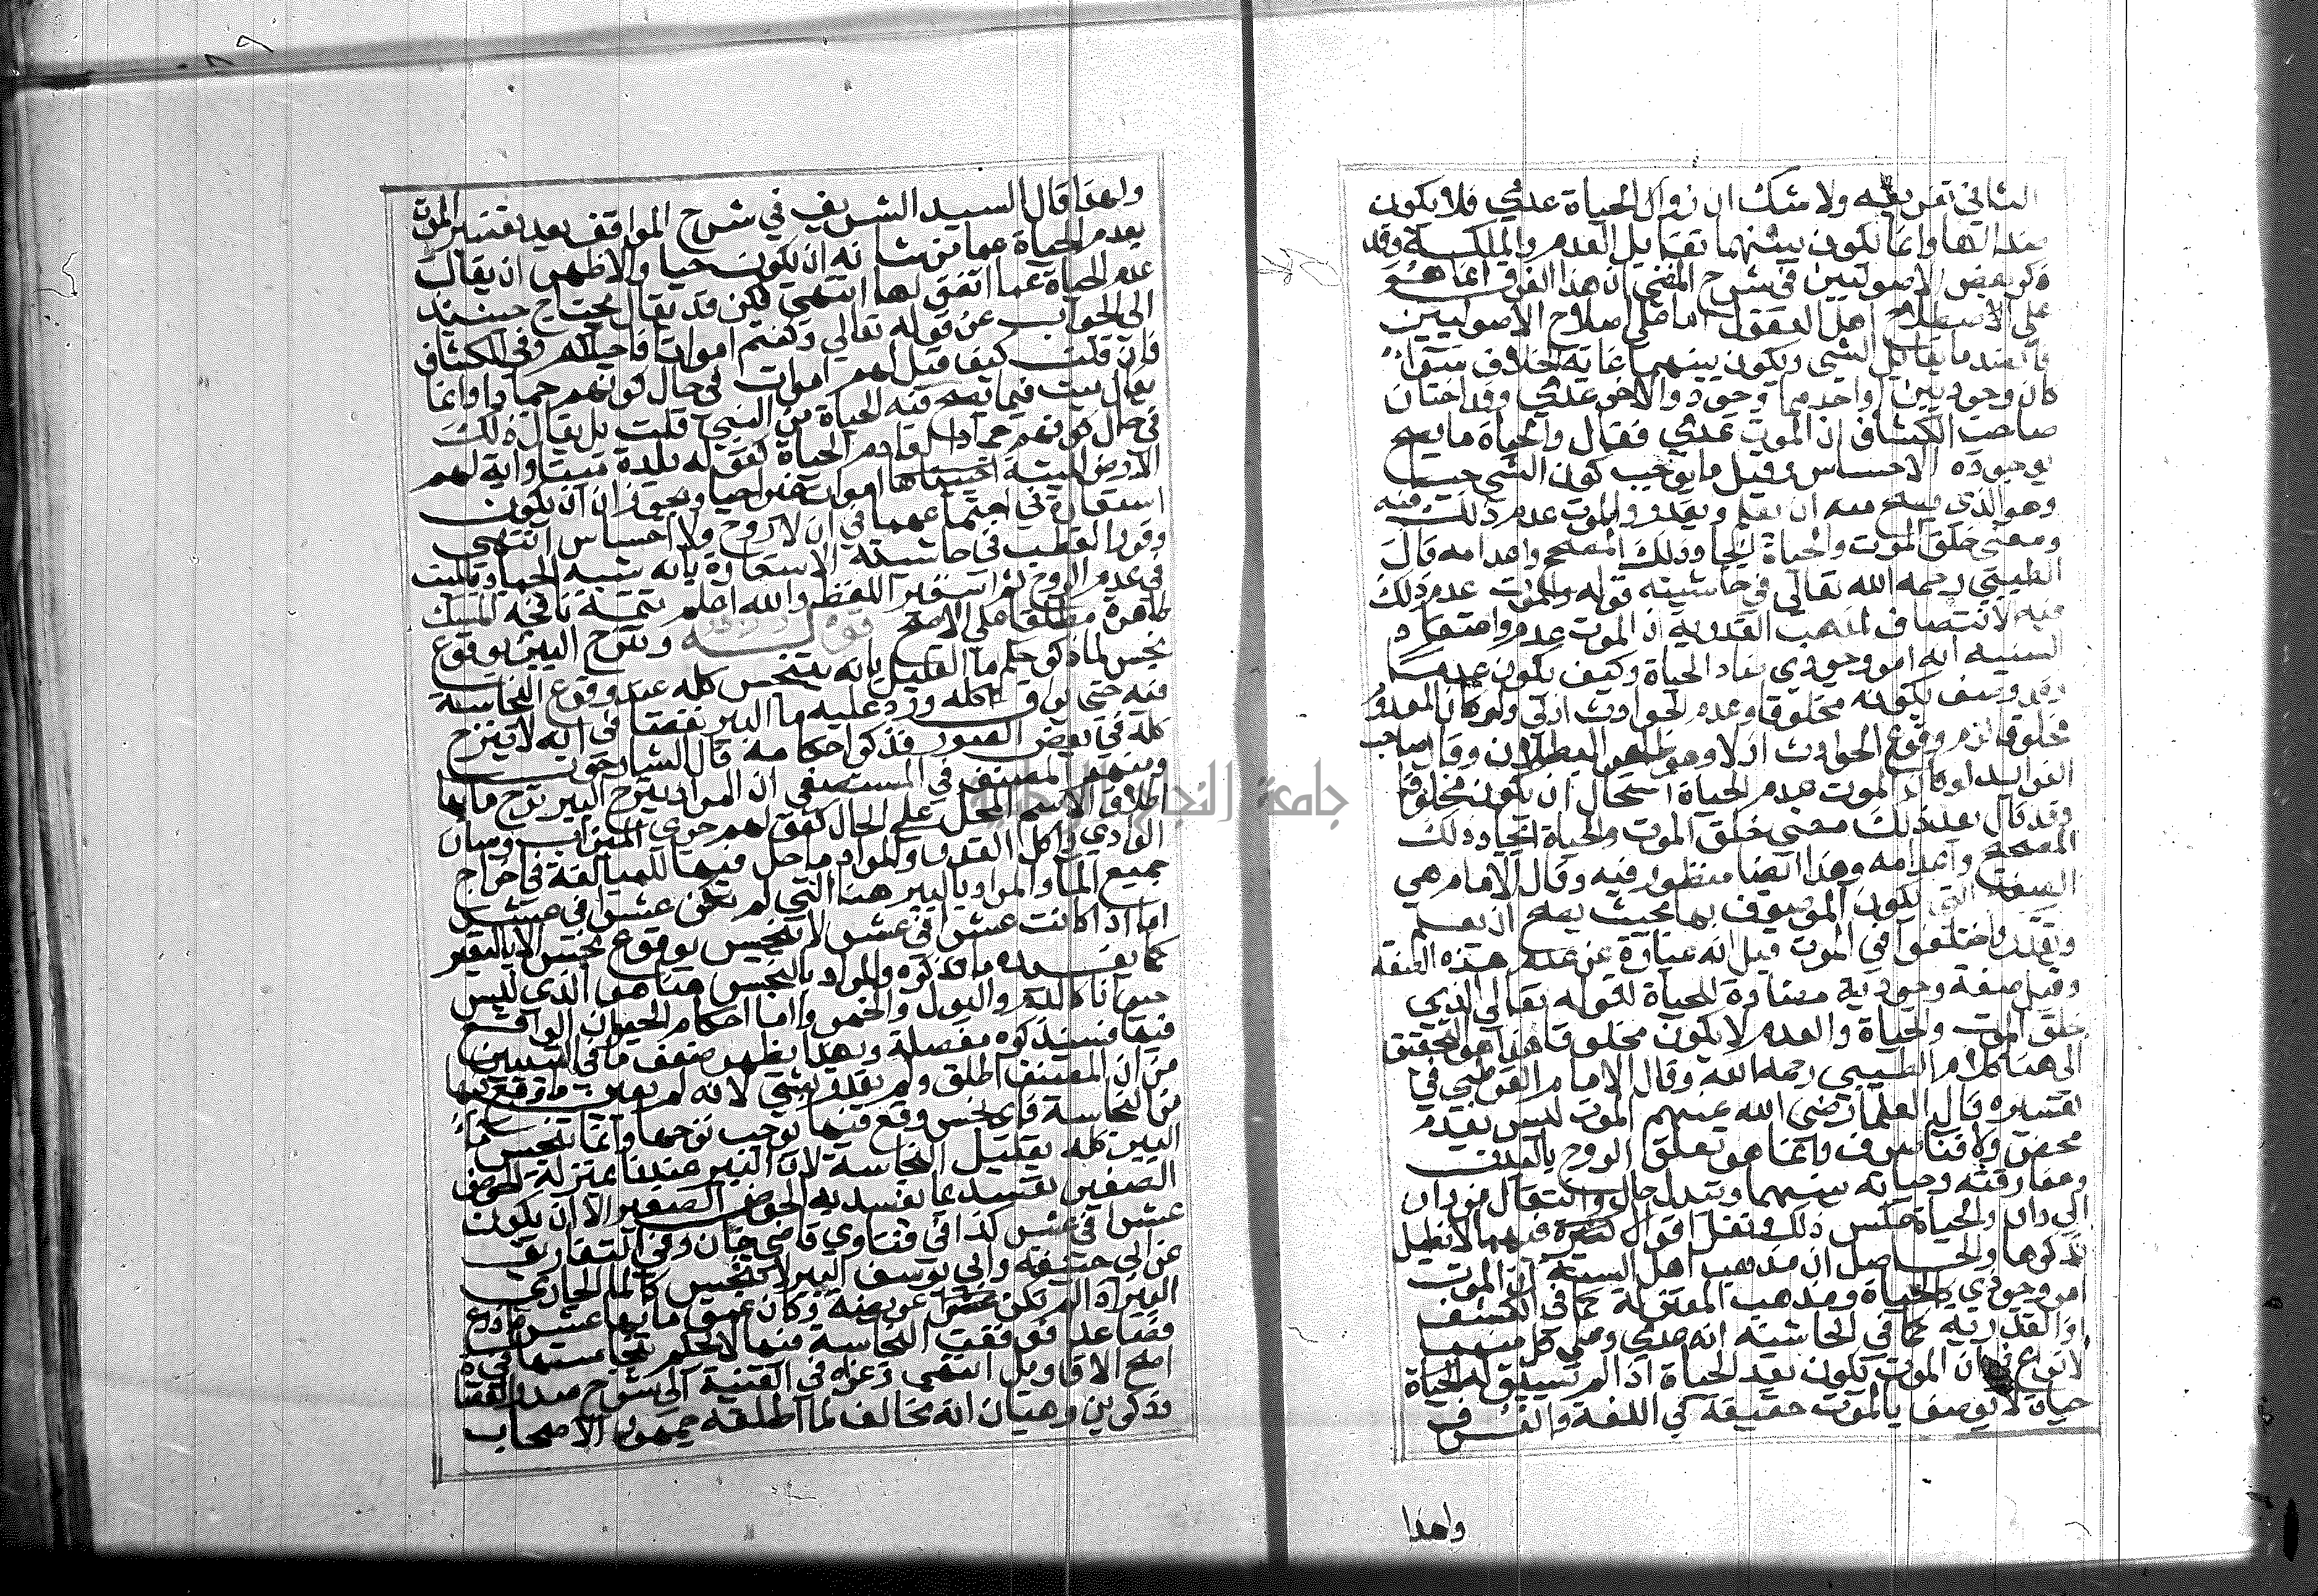 الثاني تفريقه ولا شك ان زوال الحياة عدمي فلا يكون
ضدا لها وانما يكون بينهما تقابل العدم والملكة وقد
ذكر بعض الاصوليين في شرح المغني ان هذا الفرق انما هو
على الاصطلاح اهل المعقول اما على اصلاح الاصوليين
فالضد ما يقابل الشي ويكون بينهما غاية الخلاف سوا
كان وجوديين او احدهما وجود والاخر عدمي وقد اختار
صاحب الكشاف ان الموت عدمي فقال والحياة ما يصح
بوجوده الاحساس وقيل ما يوجب كون الشي حيا
وهو الذي يصح منه ان يعلم ويقدر والموت عدم ذلك فيه
ومعنى خلق الموت والحياة ايجاد ذلك المصحح واعدامه قال
الطيبي رحمه الله تعالى في حاشيته قوله والموت عدم ذلك
فيه لانتصاف لمذهب القدرية ان الموت عدم واعتقاد
السنية انه امر وجودي يضاد الحياة وكيف يكون عدما
وقد وصف بكونه مخلوقا وعدم الحوادث ازلي ولو كان المعدوم
مخلوقا لزم وقوع الحوادث ازلا وهو ظاهر البطلان وقال صاحب
الفرايد لو كان الموت عدم الحياة استحال ان يكون مخلوقا
وقد قال بعد ذلك معنى خلق الموت والحياة ايجاد ذلك
المصحح واعدامه وهذا ايضا منظور فيه وقال الامام هي
الصفة التي يكون الموصوف بها بحيث يصح ان يعلم
ويقدر واختلفوا في الموت قيل انه عبارة عن عدم هذه الصفة
وقيل صفة وجودية مضادة للحياة لقوله تعالى الذي
خلق الموت والحياة والعدم لا يكون مخلوقا هذا هو التحقيق
الى هنا كلام الطيبي رحمه الله وقال الامام القرطبي في
تفسيره قال العلما رضي الله عنهم الموت ليس بعدم
محض ولا فنا صرف وانما هو تعلق الروح بالبدن
ومفارقته وحيالة بينهما وتبدل حال وانتقال من دار
الى دار والحياة عكس ذلك ونقل اقوال كثيرة فيهما لا نطيل
بذكرها والحاصل ان مذهب اهل السنة ان الموت
امر وجودي كالحياة ومذهب المعتزلة كما في الكشف
او القدرية كما في الحاشية انه عدمي وعلى كل منهما
لا نزاع في ان الموت يكون بعد الحياة اذ الم تسبق له الحياة
حياة لا يوصف بالموت حقيقة في اللغة والعرف
ولهذا
ولهذا قال السيد الشريف في شرح المواقف بعد تفسير الموت
بعدم الحياة عما من شانه ان يكون حيا والاظهر ان يقال
عدم الحياة عما اتصف لها انتهى لكن قد يقال محتاج حينئذ
الى الجواب عن قوله تعالى وكنتم امواتا فاحياكم وفي الكشاف
فان قلت كيف قيل لهم اموات في حال كونهم جمادا وانما
يقال ميت فيما تصح فيه الحياة من البنى قلت بل يقال ذلك
في حال كونهم جمادا لعادم الحياة كقوله بلدة ميتا واية لهم
الارض الميتة احييناها اموات غير احيا ويجوز ان ان يكون
استعارة في اجتماعهما في ان لا روح ولا احساس انتهى
وقرر القطب في حاشيته الاستعارة بانه شبيه الجماد بالميت
في عدم الروح ثم استعير اللفظ والله اعلم تتمة نافخة المسك
طاهرة مطلقا على الاصح قوله وينزح البير بوقوع
نجس لما ذكر حكم ما القليل بانه يتنجس كله عند وقوع النجاسة
فيه حتى يراق كله ورد عليه ما البير نقضا في انه لا ينزح
كله في بعض الصور فذكر احكامه قال الشارحون
ومنهم المصنف في المستصفى ان المراد ينزح البير نزح مايها
اطلاق الاسم المحل على الحال كقولهم جرى الميزاب وسال
الوادي واكل القدر والمراد ما حل فيها للمبالغة في اخراج
جميع الما والمراد بالبير هنا التي لم تكن عشرا في عشر
اما اذا كانت عشرا في عشر لا تنجس بوقوع نجس الا بالتغير
كما يفيده ما نذكره والمراد بالنجس هنا هو الذي ليس
حيوانا كالدم والبول والخمر واما احكام الحيوان الواقع
فيها فسنذكره مفصلة وبهذا يظهر ضعف ما في التبيين
من ان المصنف اطلق ولم يقدر بشي لانه لم يعين ما وقع فيها
من النجاسة فاي نجس وقع فيها يوجب نزحها وانما تنجس ما
البير كله بقليل النجاسة لان البير عندنا بمنزلة الحوض
الصغير تفسد بما يفسد به الحوض الصغير الا ان يكون
عشرا في عشر كذا في فتاوي قاضي خان وفي التفاريق
عن ابي حنيفة وابي يوسف البير لا تنجس كالما الجاري
البير اذا لم تكن عريضه وكان عمق مايها عشرة اذرع
فصاعدا فوقعت النجاسة فيها لا يحكم بنجاستها في
اصح الاقاويل انتهى وعزاه في القنية الى شرح صدر القضاة
وذكر بن وهبان انه مخالف لما اطلقه جمهور الاصحاب
جامعة النجاح الوطنية